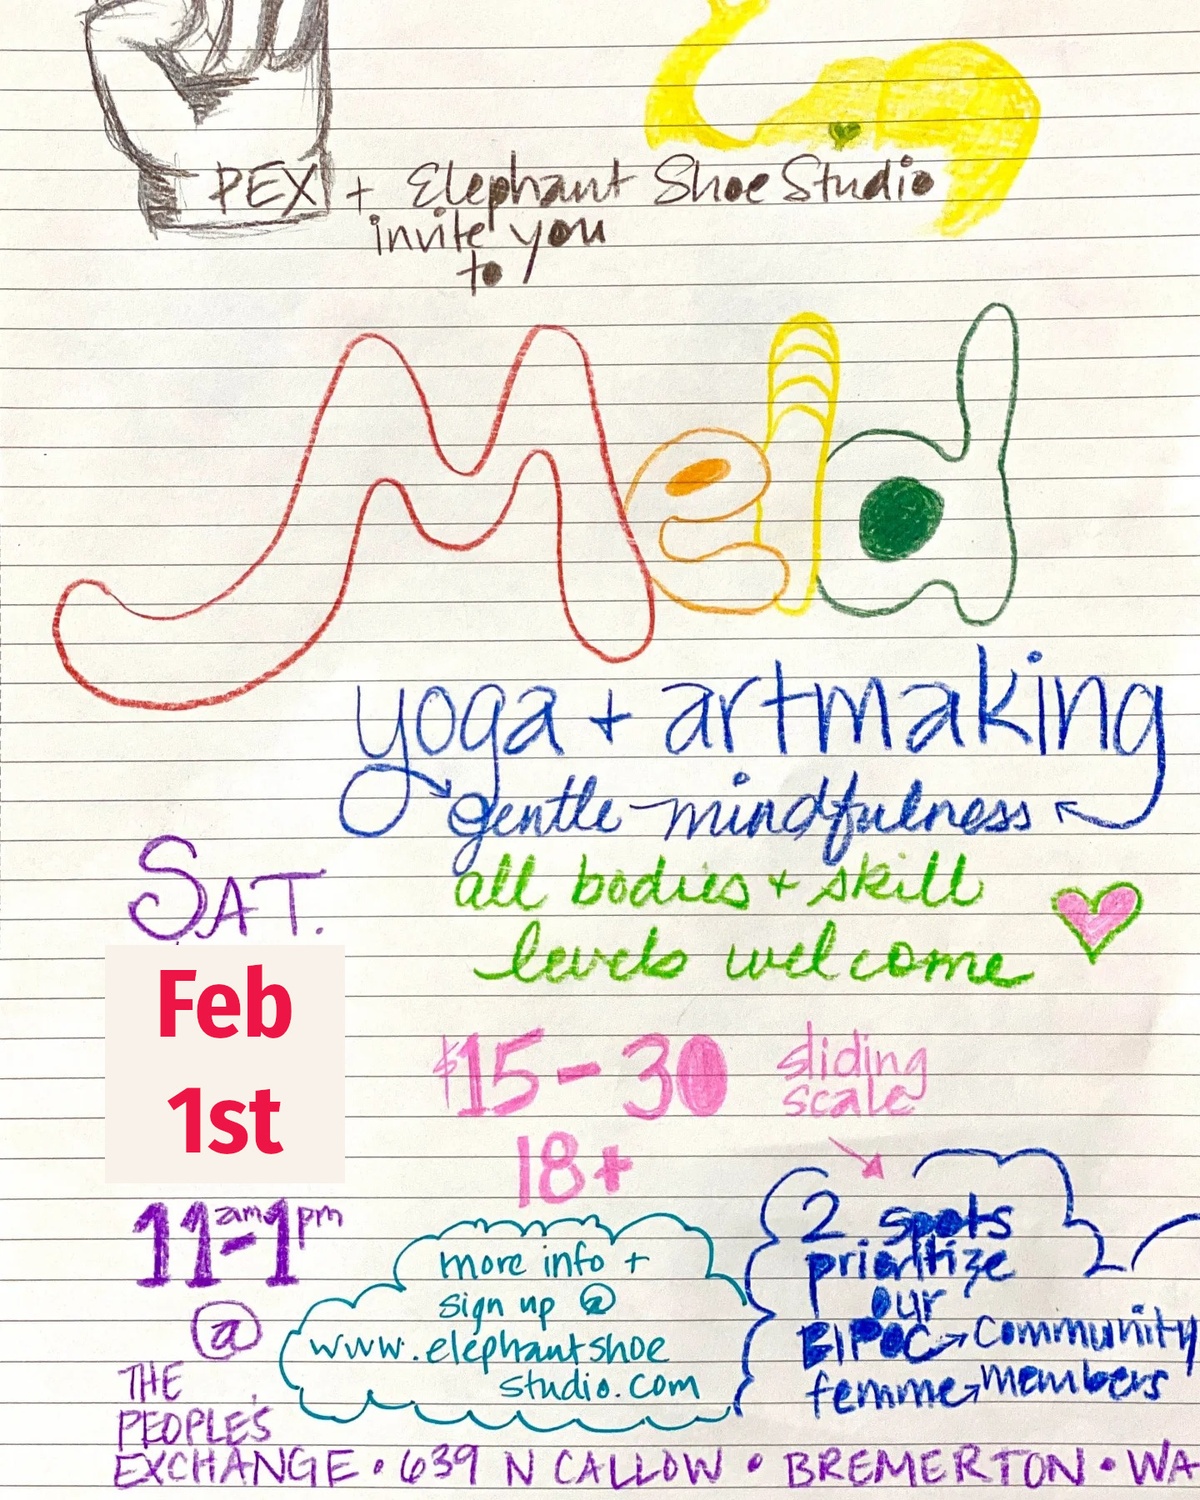 PEX + Elephant Shoe Studio
invite you
to
Meld
yoga + artmaking
gentle mindfulness
all bodies + skill
levels welcome
SAT.
Feb
1st
11am-1pm
@
THE
PEOPLE'S
EXCHANGE • 639 N CALLOW • BREMERTON • WA
$15-30
sliding
scale
18+
more info +
sign up @
www.elephantshoe
studio.com
2 spots
prioritize
our
BIPOC → community
femme → members